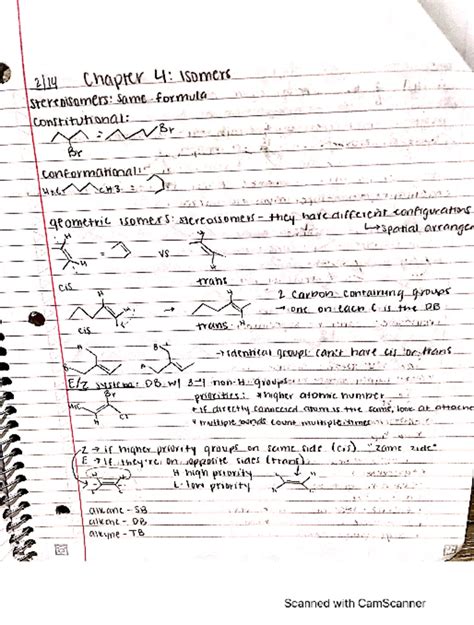 2/14 Chapter 4: Isomers
stereoisomers: same formula
constitutional:
Br
Br
conformational:
H3C CH3
geometric isomers: stereoisomers - they have different configurations
↳ spatial arrangem
H
H
vs
cis
trans
H
2 carbon containing groups
→ one on each C is the DB
cis
trans
Br
→ identical groups can't have cis or trans
E/Z system: DB w/ 3-4 non-H groups
Br
H3C
Cl
priorities: *higher atomic number
*if directly connected atom is the same, look at attache
*multiple bonds count multiple times
Z → if higher priority groups on same side (cis) "zame zide"
E → if they're on opposite sides (trans)
H high priority
L low priority
alkane - SB
alkene - DB
alkyne - TB
Scanned with CamScanner